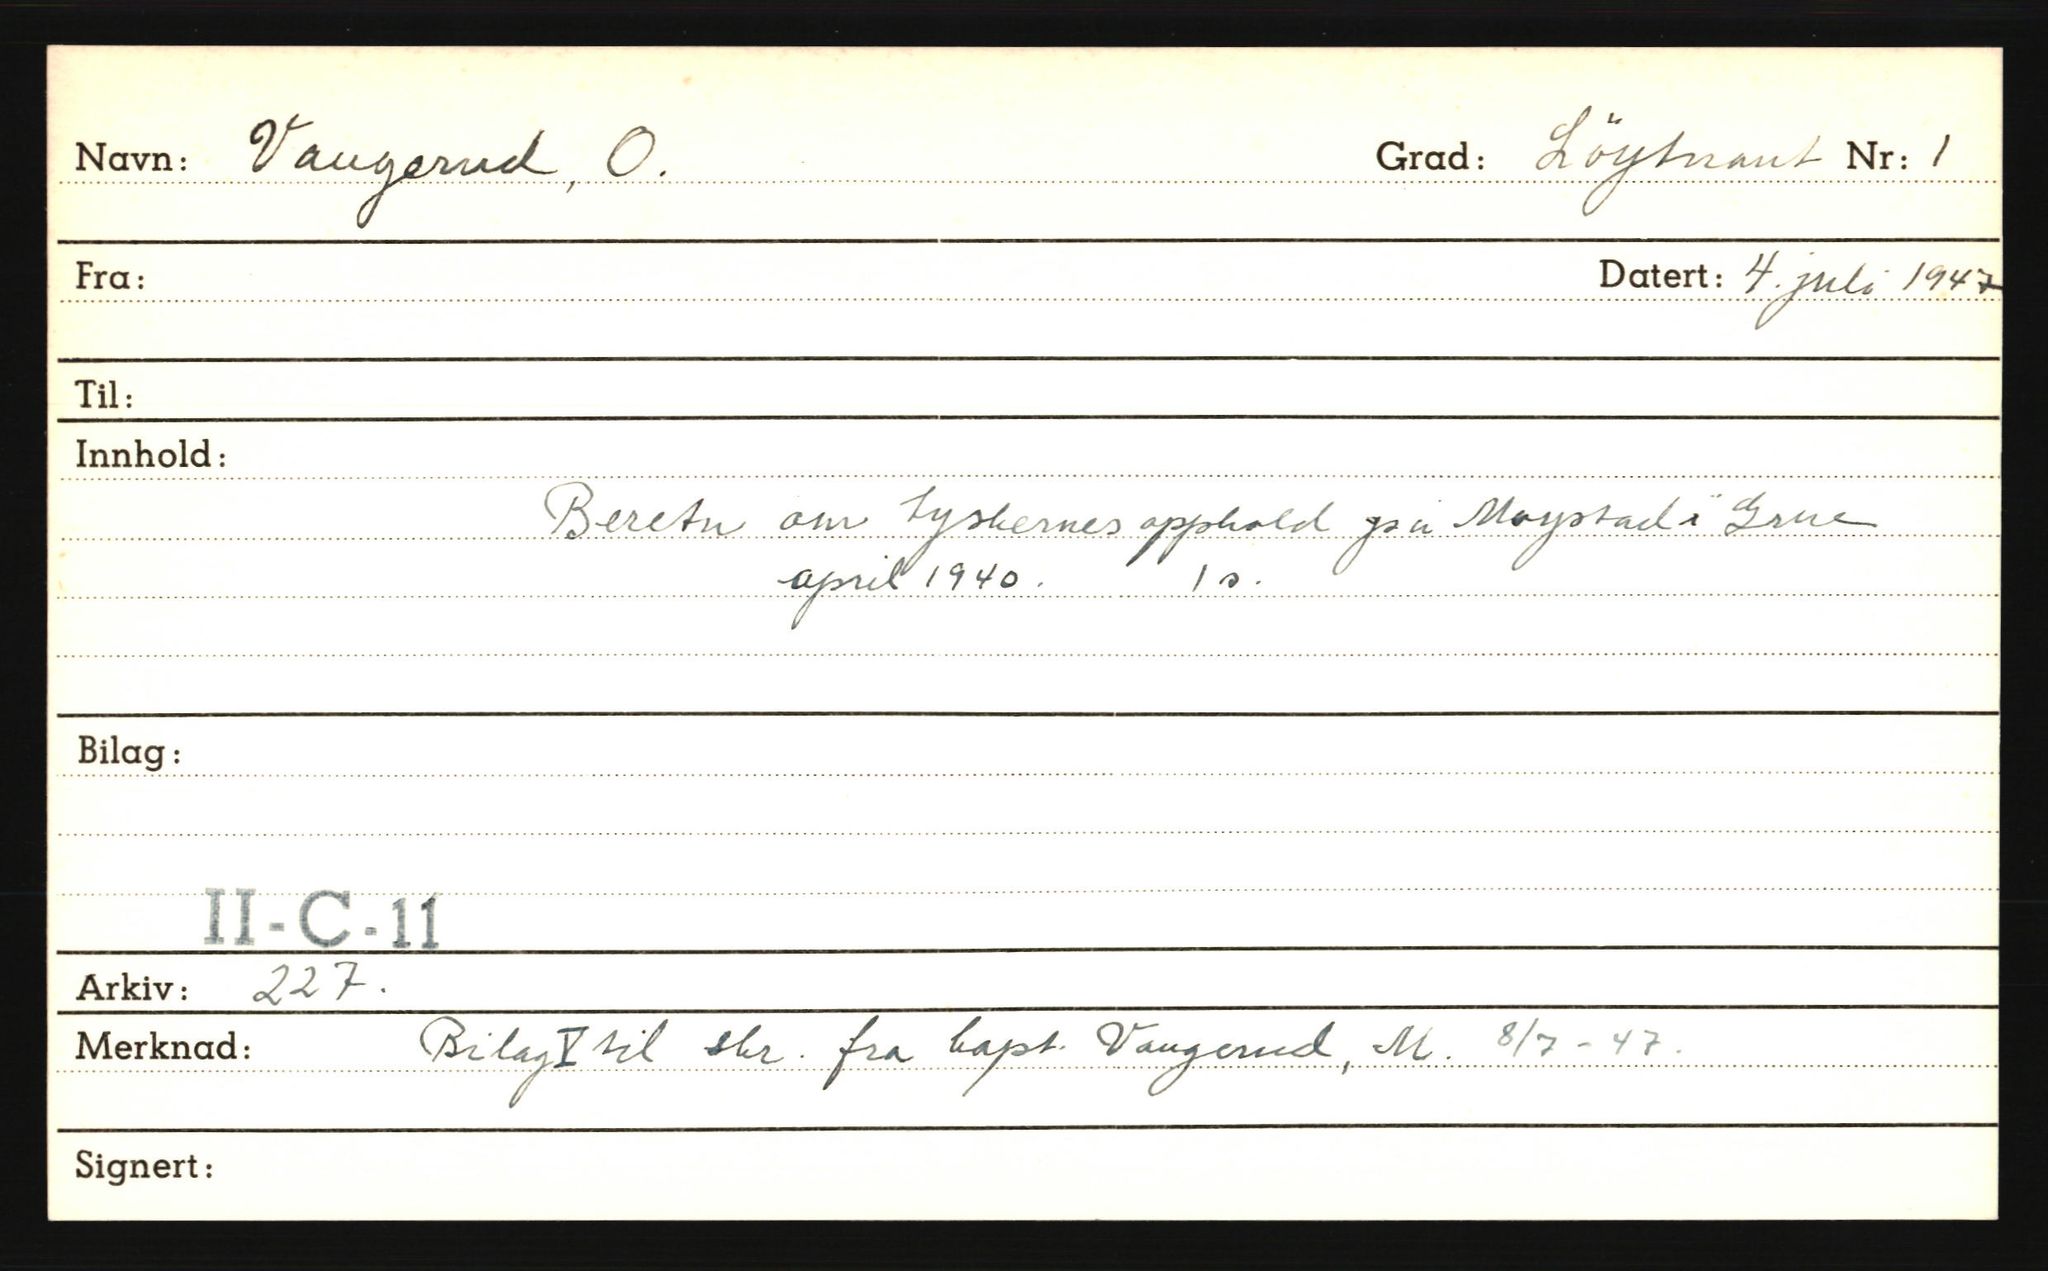 Navn: Vangerud, O. Grad: Löytnant Nr: 1
Fra: Datert: 4. juli 1947
Til:
Innhold:
Beretn om tyskernes opphold på Møystad i Grue
april 1940. 1 s.
Bilag:
II-C-11
Arkiv: 227.
Merknad: Bilag V til skr. fra kapt. Vangerud, M. 8/7-47.
Signert: